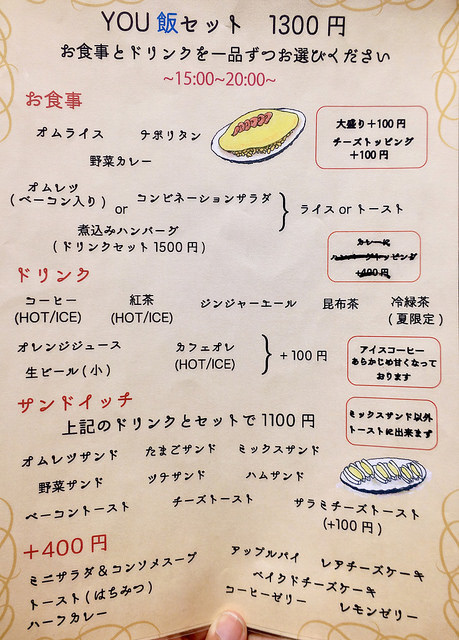 YOU 飯セット 1300 円
お食事とドリンクを一品ずつお選びください
~15:00~20:00~
お食事
オムライス ナポリタン
野菜カレー
大盛り+100 円
チーズトッピング
+100 円
オムレツ
(ベーコン入り) or コンビネーションサラダ
煮込みハンバーグ
(ドリンクセット 1500 円)
ライス or トースト
カレーに
トッピング
+400 円
ドリンク
コーヒー
(HOT/ICE)
紅茶
(HOT/ICE)
ジンジャーエール
昆布茶
冷緑茶
(夏限定)
オレンジジュース
生ビール(小)
カフェオレ
(HOT/ICE)
+100 円
アイスコーヒー
あらかじめ甘くなって
おります
サンドイッチ
上記のドリンクとセットで 1100 円
ミックスサンド以外
トーストに出来ます
オムレツサンド たまごサンド ミックスサンド
野菜サンド ツナサンド ハムサンド
ベーコントースト チーズトースト サラミチーズトースト
(+100 円)
+400 円
ミニサラダ&コンソメスープ
トースト(はちみつ)
ハーフカレー
アップルパイ レアチーズケーキ
ベイクドチーズケーキ
コーヒーゼリー レモンゼリー